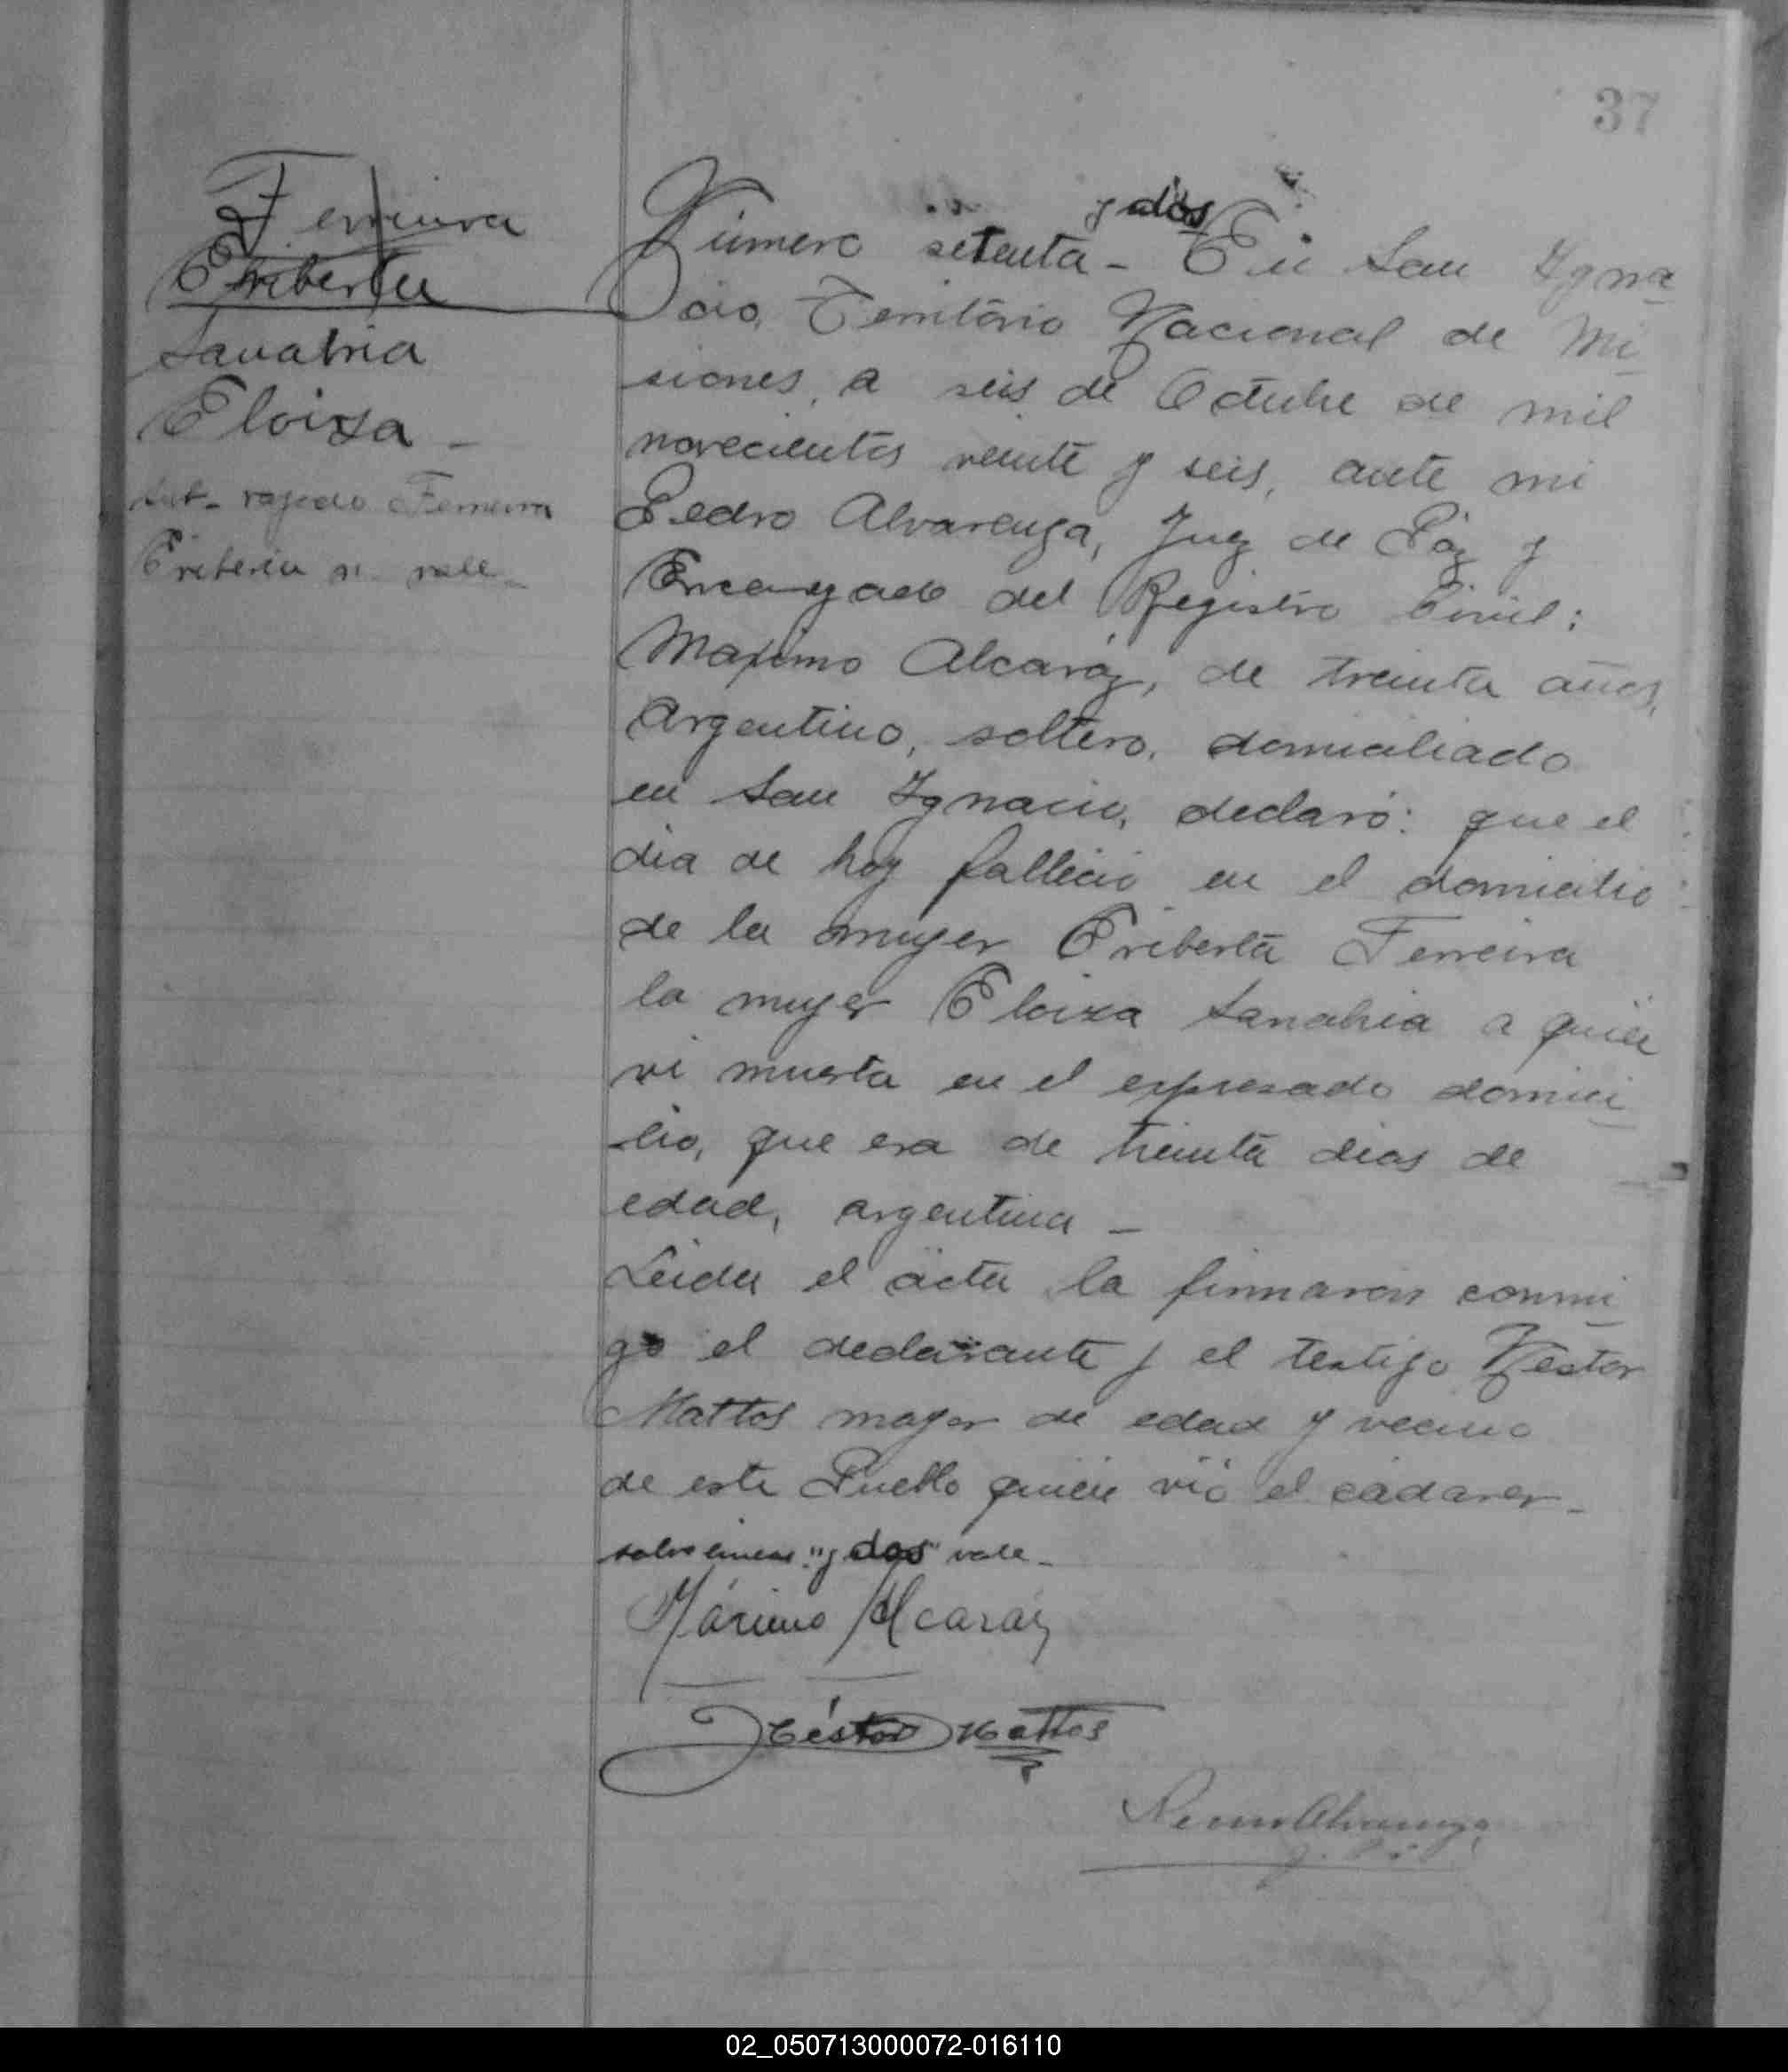 37
Ferreira
Eriberta
Sanabria
Eloiza -
Ferreira
Eriberta n. vale -
y dos
Número setenta - En San Igna
cio, Territorio Nacional de Mi
siones, a seis de Octubre de mil
novecientos veinte y seis, ante mi
Pedro Alvarenga, Juez de Páz y
Encargado del Registro Civil:
Maximo Alcaráz, de treinta años,
argentino, soltero, domiciliado
en San Ignacio, declaró: que el
dia de hoy falleció en el domicilio
de la mujer Eriberta Ferreira
la mujer Eloiza Sanabria a quien
vi muerta en el expresado domici
lio, que era de treinta dias de
edad, argentina -
Leida el acta la firmaron conmi
go el declarante y el testigo Néstor
Mattos mayor de edad y vecino
de este Pueblo quien vió el cadaver -
sobre lineas: "y dos" vale -
Máximo Alcaráz
Néstor Mattos
Pedro Alvarenga
J. P.
02_050713000072-016110